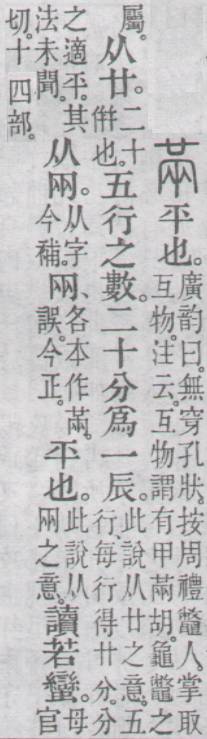 㒼平也。廣韵曰。無穿孔狀。按周禮鼈人。掌取互物。注云。互物謂有甲㒼胡。龜鼈之
屬。从廿。二十倂也。五行之數。二十分爲一辰。此說从廿之意。五行、每行得廿分。分
之適平。其法未聞。从㒳。从字今補。㒳、各本作㒼。誤。今正。平也。此說从㒳之意。讀若蠻。母官
切。十四部。